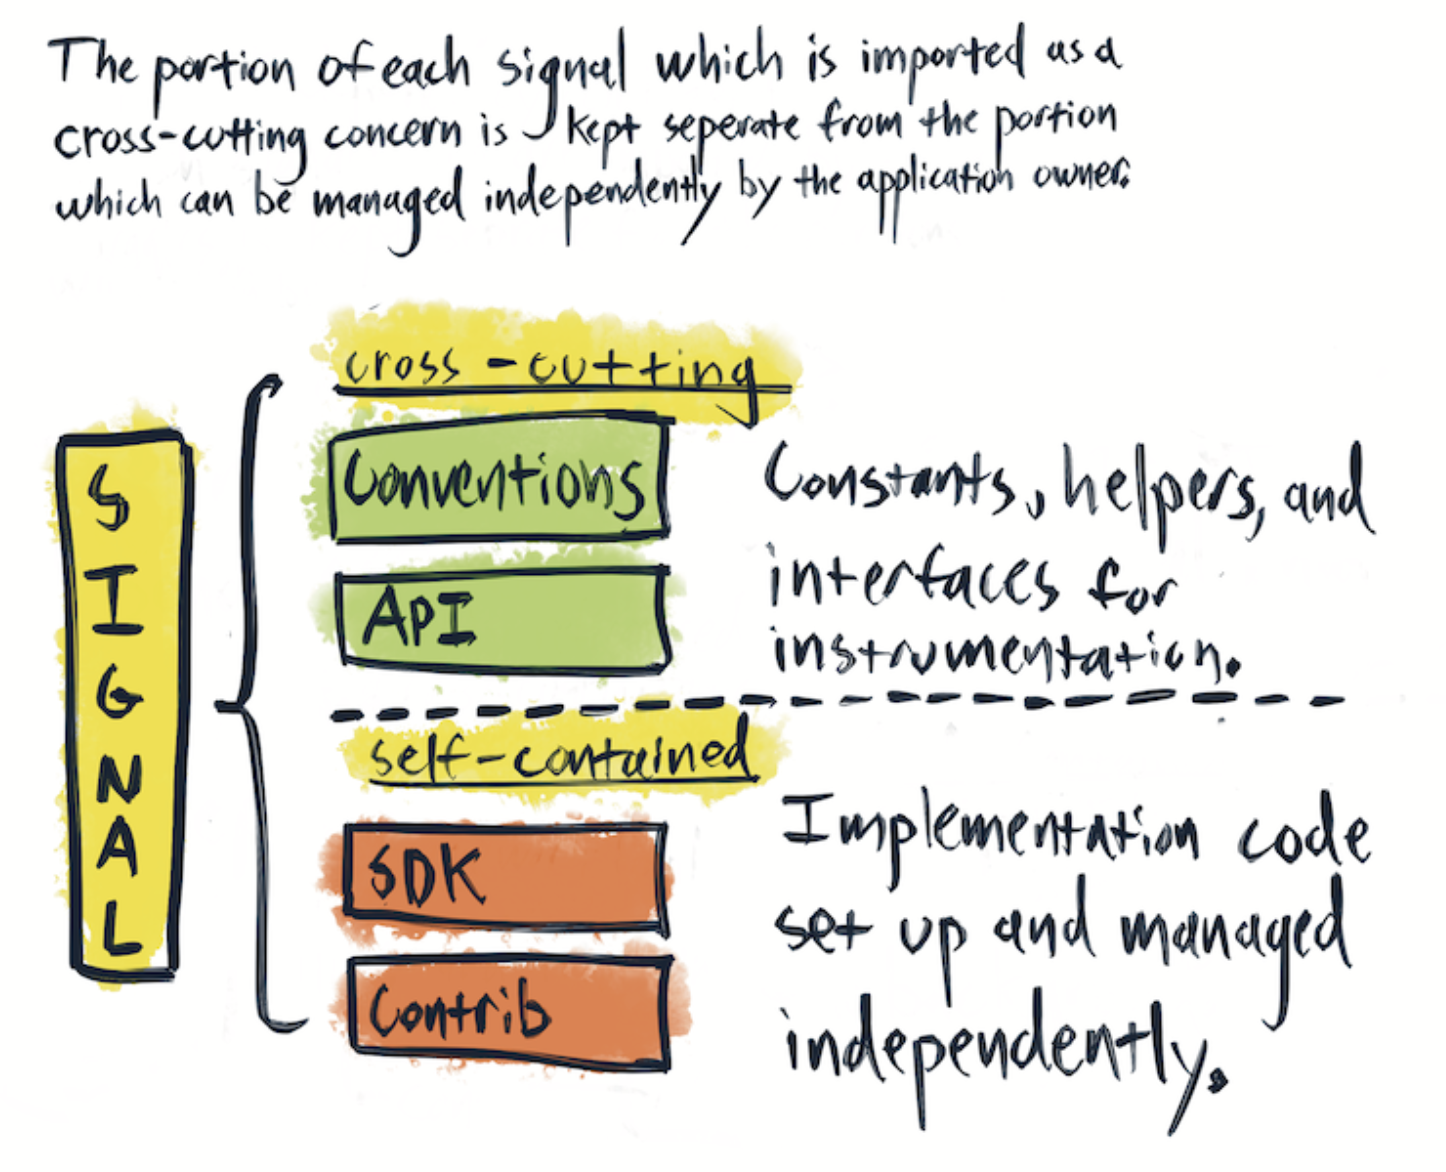 The portion of each signal which is imported as a
cross-cutting concern is kept seperate from the portion
which can be managed independently by the application owner.
SIGNAL
cross-cutting
Conventions
API
Constants, helpers, and
interfaces for
instrumentation.
self-contained
SDK
Contrib
Implementation code
set up and managed
independently.